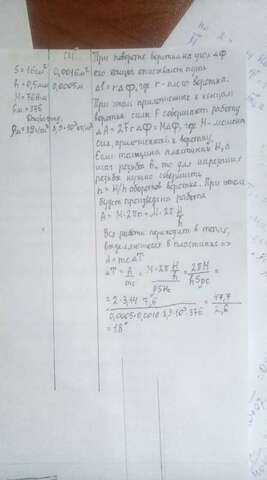 СИ
S = 16см² 0,0016м²
h = 0,5мм 0,0005м
M = 7,6Н·м
8,9·10³кг/м³
При повороте воротка на угол Δφ
его концы описывают путь
Δl = rΔφ, где r - плечо воротка.
При этом приложенные к концам
воротка силы F совершают работу
ΔA = 2FrΔφ = MΔφ, где M - момент
сил, приложенных к воротку.
Если толщина пластинки H, а
шаг резьбы h, то для нарезания
резьбы нужно совершить
n = H/h оборотов воротка. При этом
будет произведена работа
A = M·2πn = M·2π H/h
Вся работа переходит в тепло,
выделяющееся в пластинке
ΔT = A/mc = M·2π H/h / ρSHc = 2πM/hSρc =
= 2·3,14·7,6 / 0,0005·0,0016·8,9·10³·376 = 47,7/2,6
= 18°